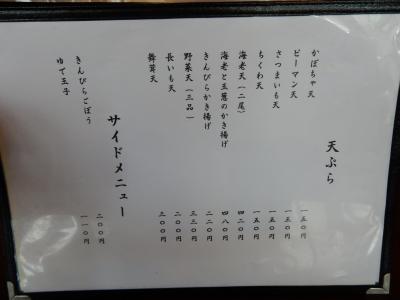 天ぷら
かぼちゃ天 一五〇円
ピーマン天 一五〇円
さつまいも天 一五〇円
ちくわ天 一五〇円
海老天(二尾) 四二〇円
海老と玉葱のかき揚げ 四八〇円
きんぴらかき揚げ 二二〇円
野菜天(三品) 三三〇円
長いも天 二〇〇円
舞茸天 三〇〇円
サイドメニュー
きんぴらごぼう 二〇〇円
ゆで玉子 一一〇円